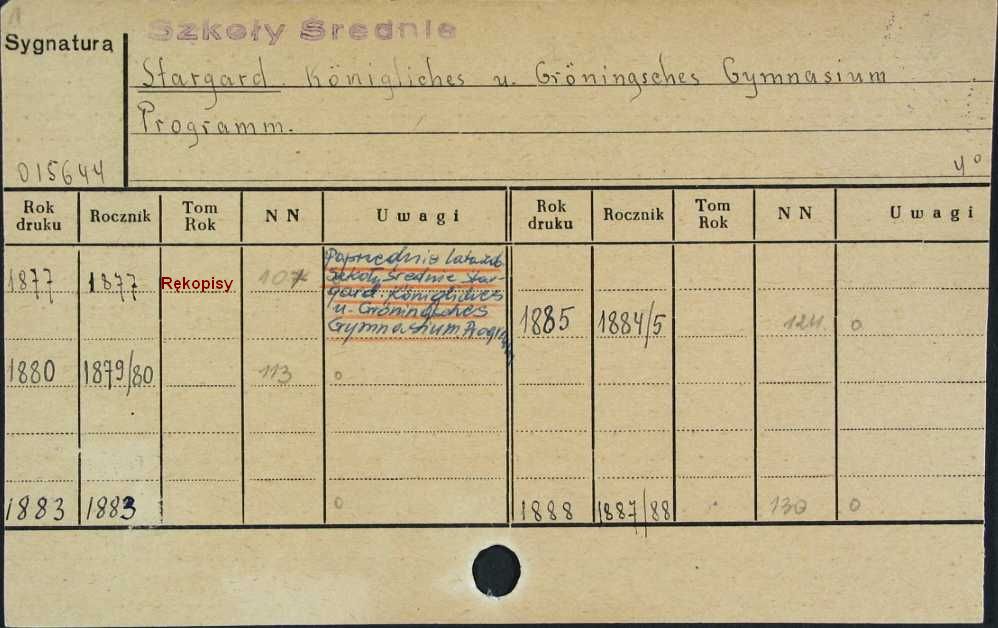 Szkoły Średnie
Sygnatura
Stargard. Königliches u. Gröningsches Gymnasium
Programm.
015644
4°
Rok druku Rocznik Tom Rok NN Uwagi Rok druku Rocznik Tom Rok NN Uwagi
Poprzednie lata zob.
Szkoły Średnie Star-
1877 1877 Rękopisy 107
gard. Königliches
u. Gröningsches
1885 1884/5 124 o
Gymnasium. Programm
1880 1879/80 113 o
1883 1883 o 1888 1887/88 130 o